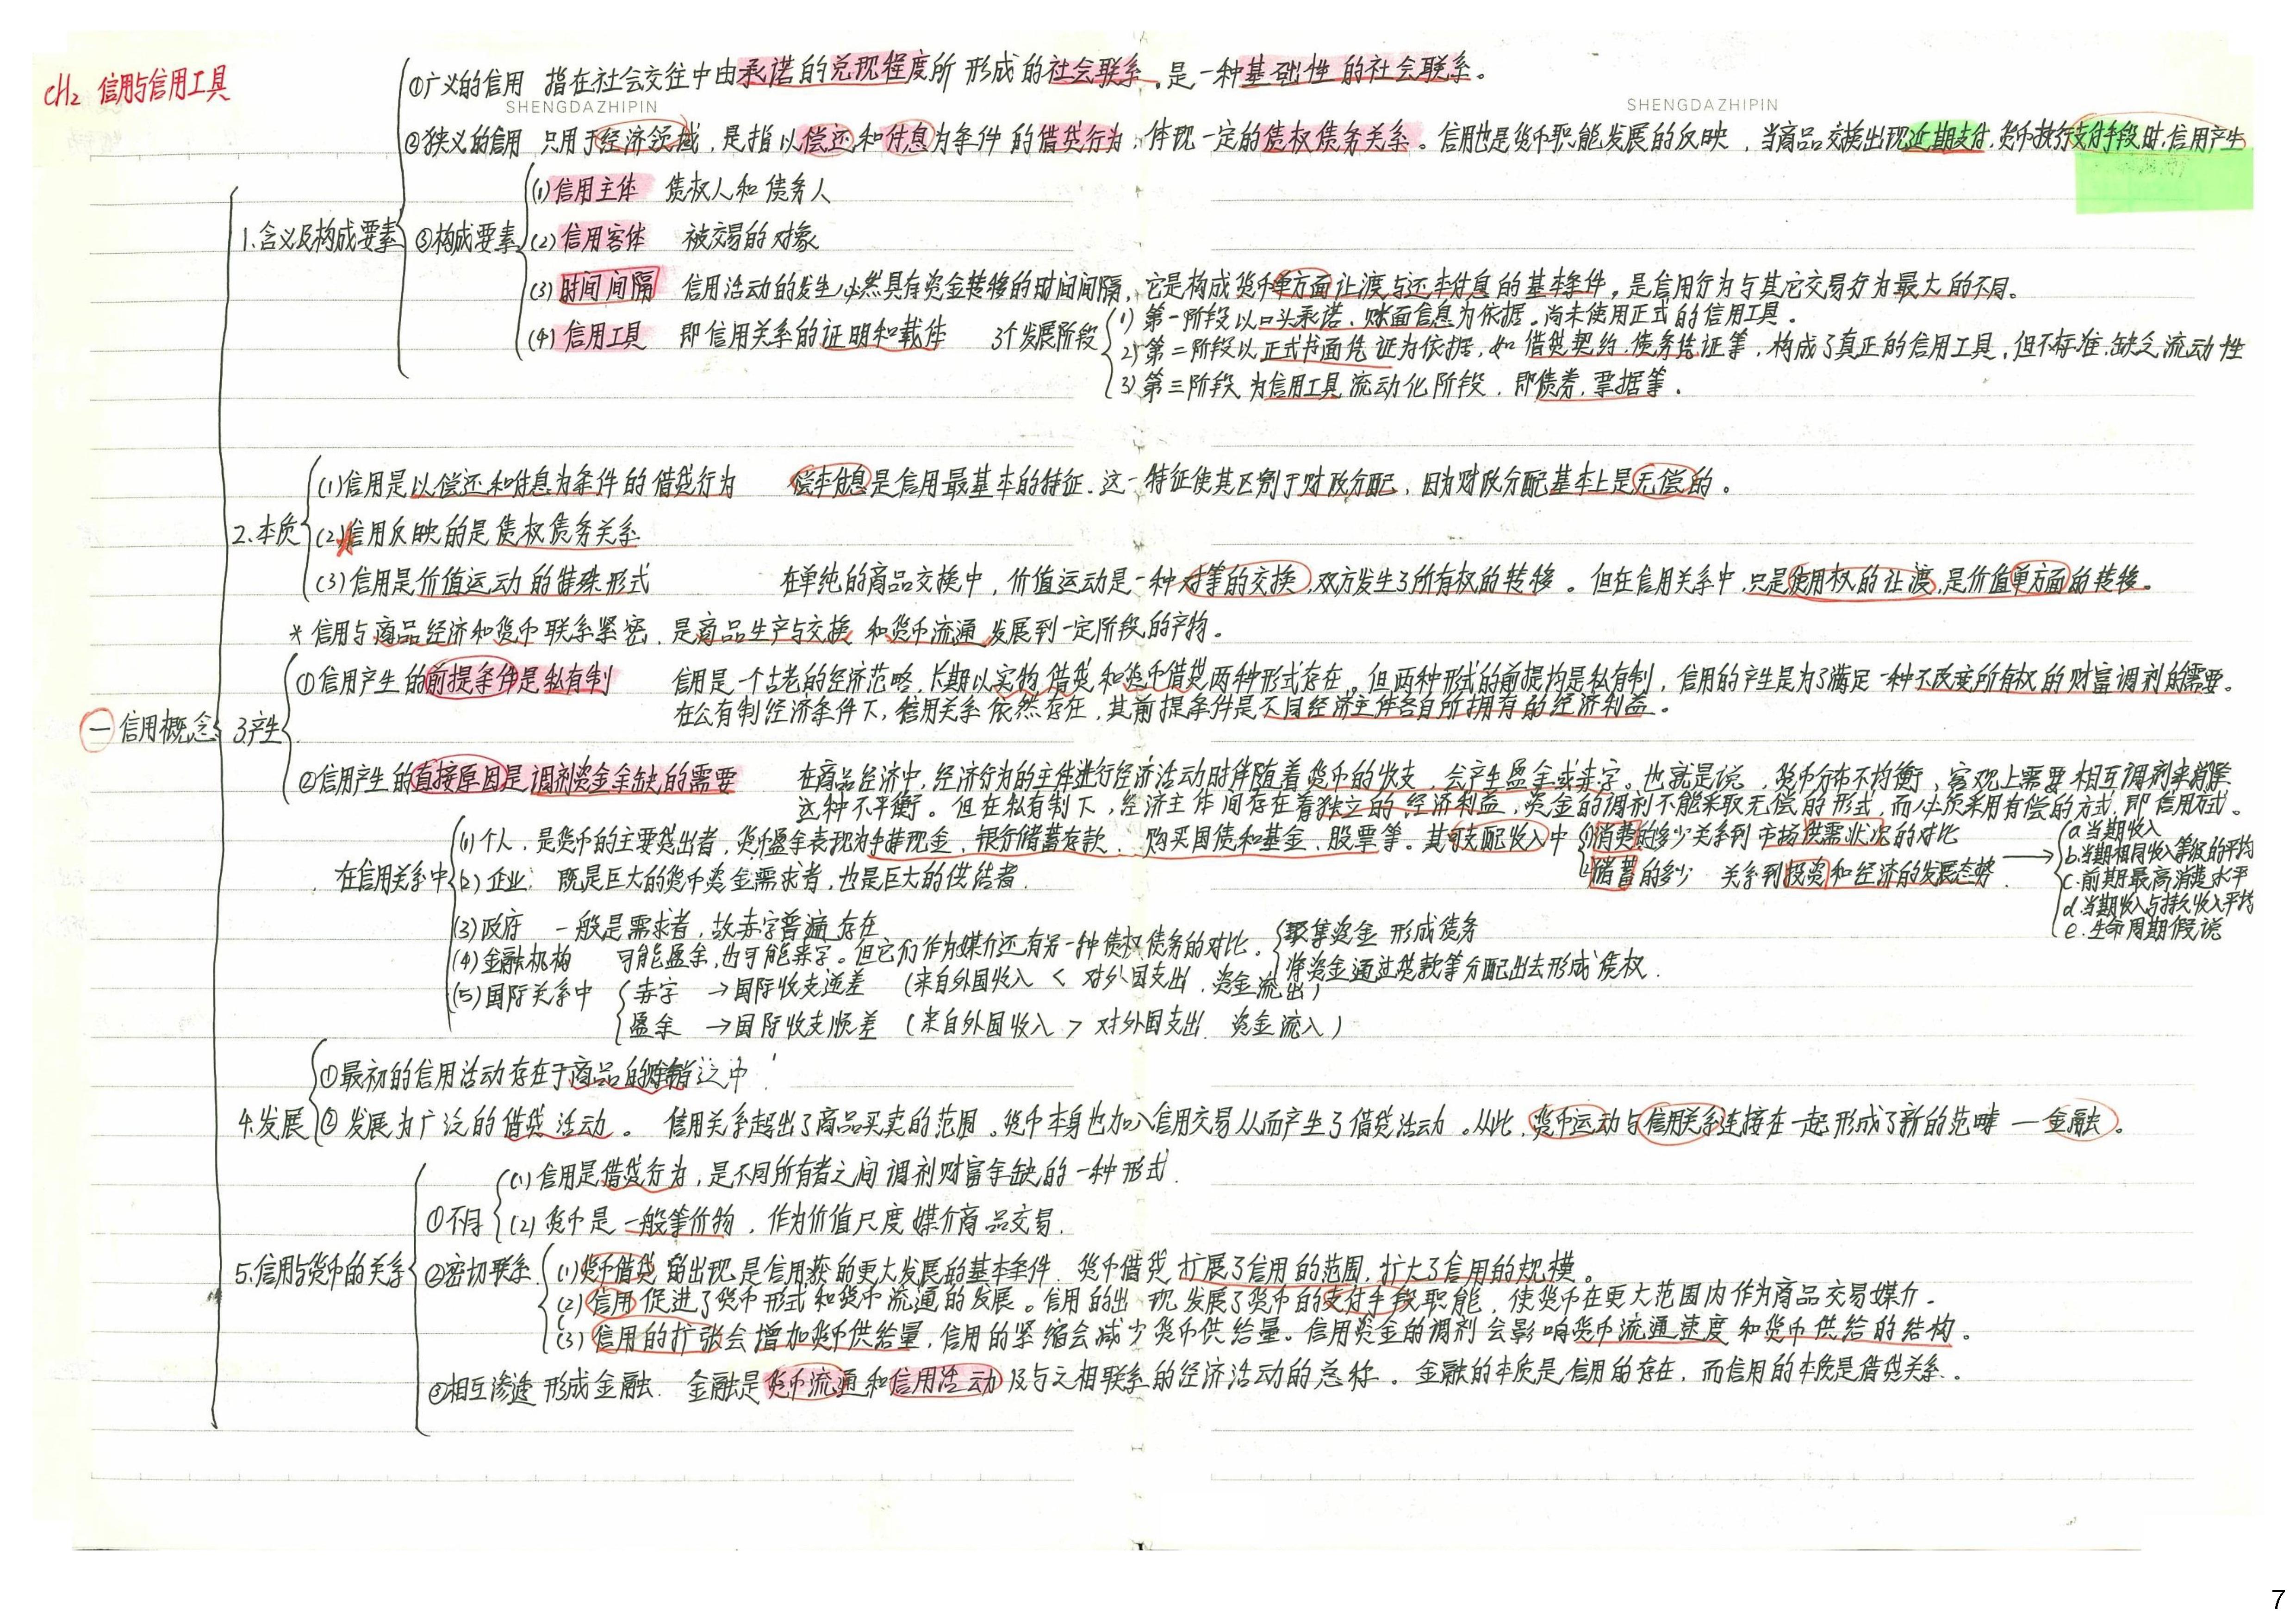 CH2 信用与信用工具
①广义的信用 指在社会交往中由承诺的兑现程度所形成的社会联系。是一种基础性的社会联系。
SHENGDAZHIPIN
SHENGDAZHIPIN
②狭义的信用 只用于经济领域，是指以偿还和付息为条件的借贷行为，体现一定的债权债务关系。信用也是货币职能发展的反映，当商品交换出现延期支付，货币执行支付手段时，信用产生
1.含义及构成要素
③构成要素
(1)信用主体 债权人和债务人
(2)信用客体 被交易的对象
(3)时间间隔 信用活动的发生必然具有资金转移的时间间隔，它是构成货币单方面让渡与还本付息的基本条件，是信用行为与其它交易行为最大的不同。
(4)信用工具 即信用关系的证明和载体 3个发展阶段
1)第一阶段以口头承诺、账面信息为依据。尚未使用正式的信用工具.
2)第二阶段以正式书面凭证为依据，如借贷契约、债务凭证等，构成了真正的信用工具，但不标准.缺乏流动性
3)第三阶段为信用工具流动化阶段，即债券，票据等.
2.本质
(1)信用是以偿还和付息为条件的借贷行为 偿本付息是信用最基本的特征.这一特征使其区别于财政分配，因为财政分配基本上是无偿的。
(2)信用反映的是债权债务关系
(3)信用是价值运动的特殊形式 在单纯的商品交换中，价值运动是一种对等的交换，双方发生了所有权的转移。但在信用关系中，只是使用权的让渡，是价值单方面的转移。
*信用与商品经济和货币联系紧密，是商品生产与交换和货币流通发展到一定阶段的产物。
一 信用概念
3.产生
①信用产生的前提条件是私有制 信用是一个古老的经济范畴，长期以实物借贷和货币借贷两种形式存在。但两种形式的前提均是私有制，信用的产生是为了满足一种不改变所有权的财富调剂的需要。
在公有制经济条件下，信用关系依然存在，其前提条件是不同经济主体各自所拥有的经济利益。
②信用产生的直接原因是调剂资金余缺的需要 在商品经济中，经济行为的主体进行经济活动时伴随着货币的收支，会产生盈余或赤字。也就是说，货币分布不均衡，客观上需要相互调剂来消除
这种不平衡。但在私有制下，经济主体间存在着独立的经济利益，资金的调剂不能采取无偿的形式，而必须采用有偿的方式，即信用方式。
在信用关系中
(1)个人，是货币的主要贷出者，货币盈余表现为手持现金、银行储蓄存款、购买国债和基金、股票等。其可支配收入中
①消费的多少关系到市场供需状况的对比
②储蓄的多少 关系到投资和经济的发展态势
a.当期收入
b.当期相同收入等级的平均
c.前期最高消费水平
d.当期收入与持久收入平均
e.生命周期假说
(2)企业 既是巨大的货币资金需求者，也是巨大的供给者.
(3)政府 一般是需求者，故赤字普遍存在
(4)金融机构 可能盈余，也可能赤字。但它们作为媒介还有另一种债权债务的对比.
聚集资金 形成债务
将资金通过贷款等分配出去形成债权.
(5)国际关系中
赤字 → 国际收支逆差 (来自外国收入 < 对外国支出，资金流出)
盈余 → 国际收支顺差 (来自外国收入 > 对外国支出. 资金流入)
4.发展
①最初的信用活动存在于商品的赊销之中
②发展为广泛的借贷活动。 信用关系超出了商品买卖的范围。货币本身也加入信用交易从而产生了借贷活动。从此，货币运动与信用关系连接在一起形成了新的范畴 — 金融。
5.信用与货币的关系
①不同
(1)信用是借贷行为，是不同所有者之间调剂财富余缺的一种形式.
(2)货币是一般等价物，作为价值尺度媒介商品交易.
②密切联系
(1)货币借贷的出现是信用获的更大发展的基本条件. 货币借贷扩展了信用的范围，扩大了信用的规模。
(2)信用促进了货币形式和货币流通的发展。信用的出现发展了货币的支付手段职能，使货币在更大范围内作为商品交易媒介.
(3)信用的扩张会增加货币供给量，信用的紧缩会减少货币供给量。信用资金的调剂会影响货币流通速度和货币供给的结构。
③相互渗透形成金融. 金融是货币流通和信用活动以及与之相联系的经济活动的总称。金融的本质是信用的存在，而信用的本质是借贷关系.
7